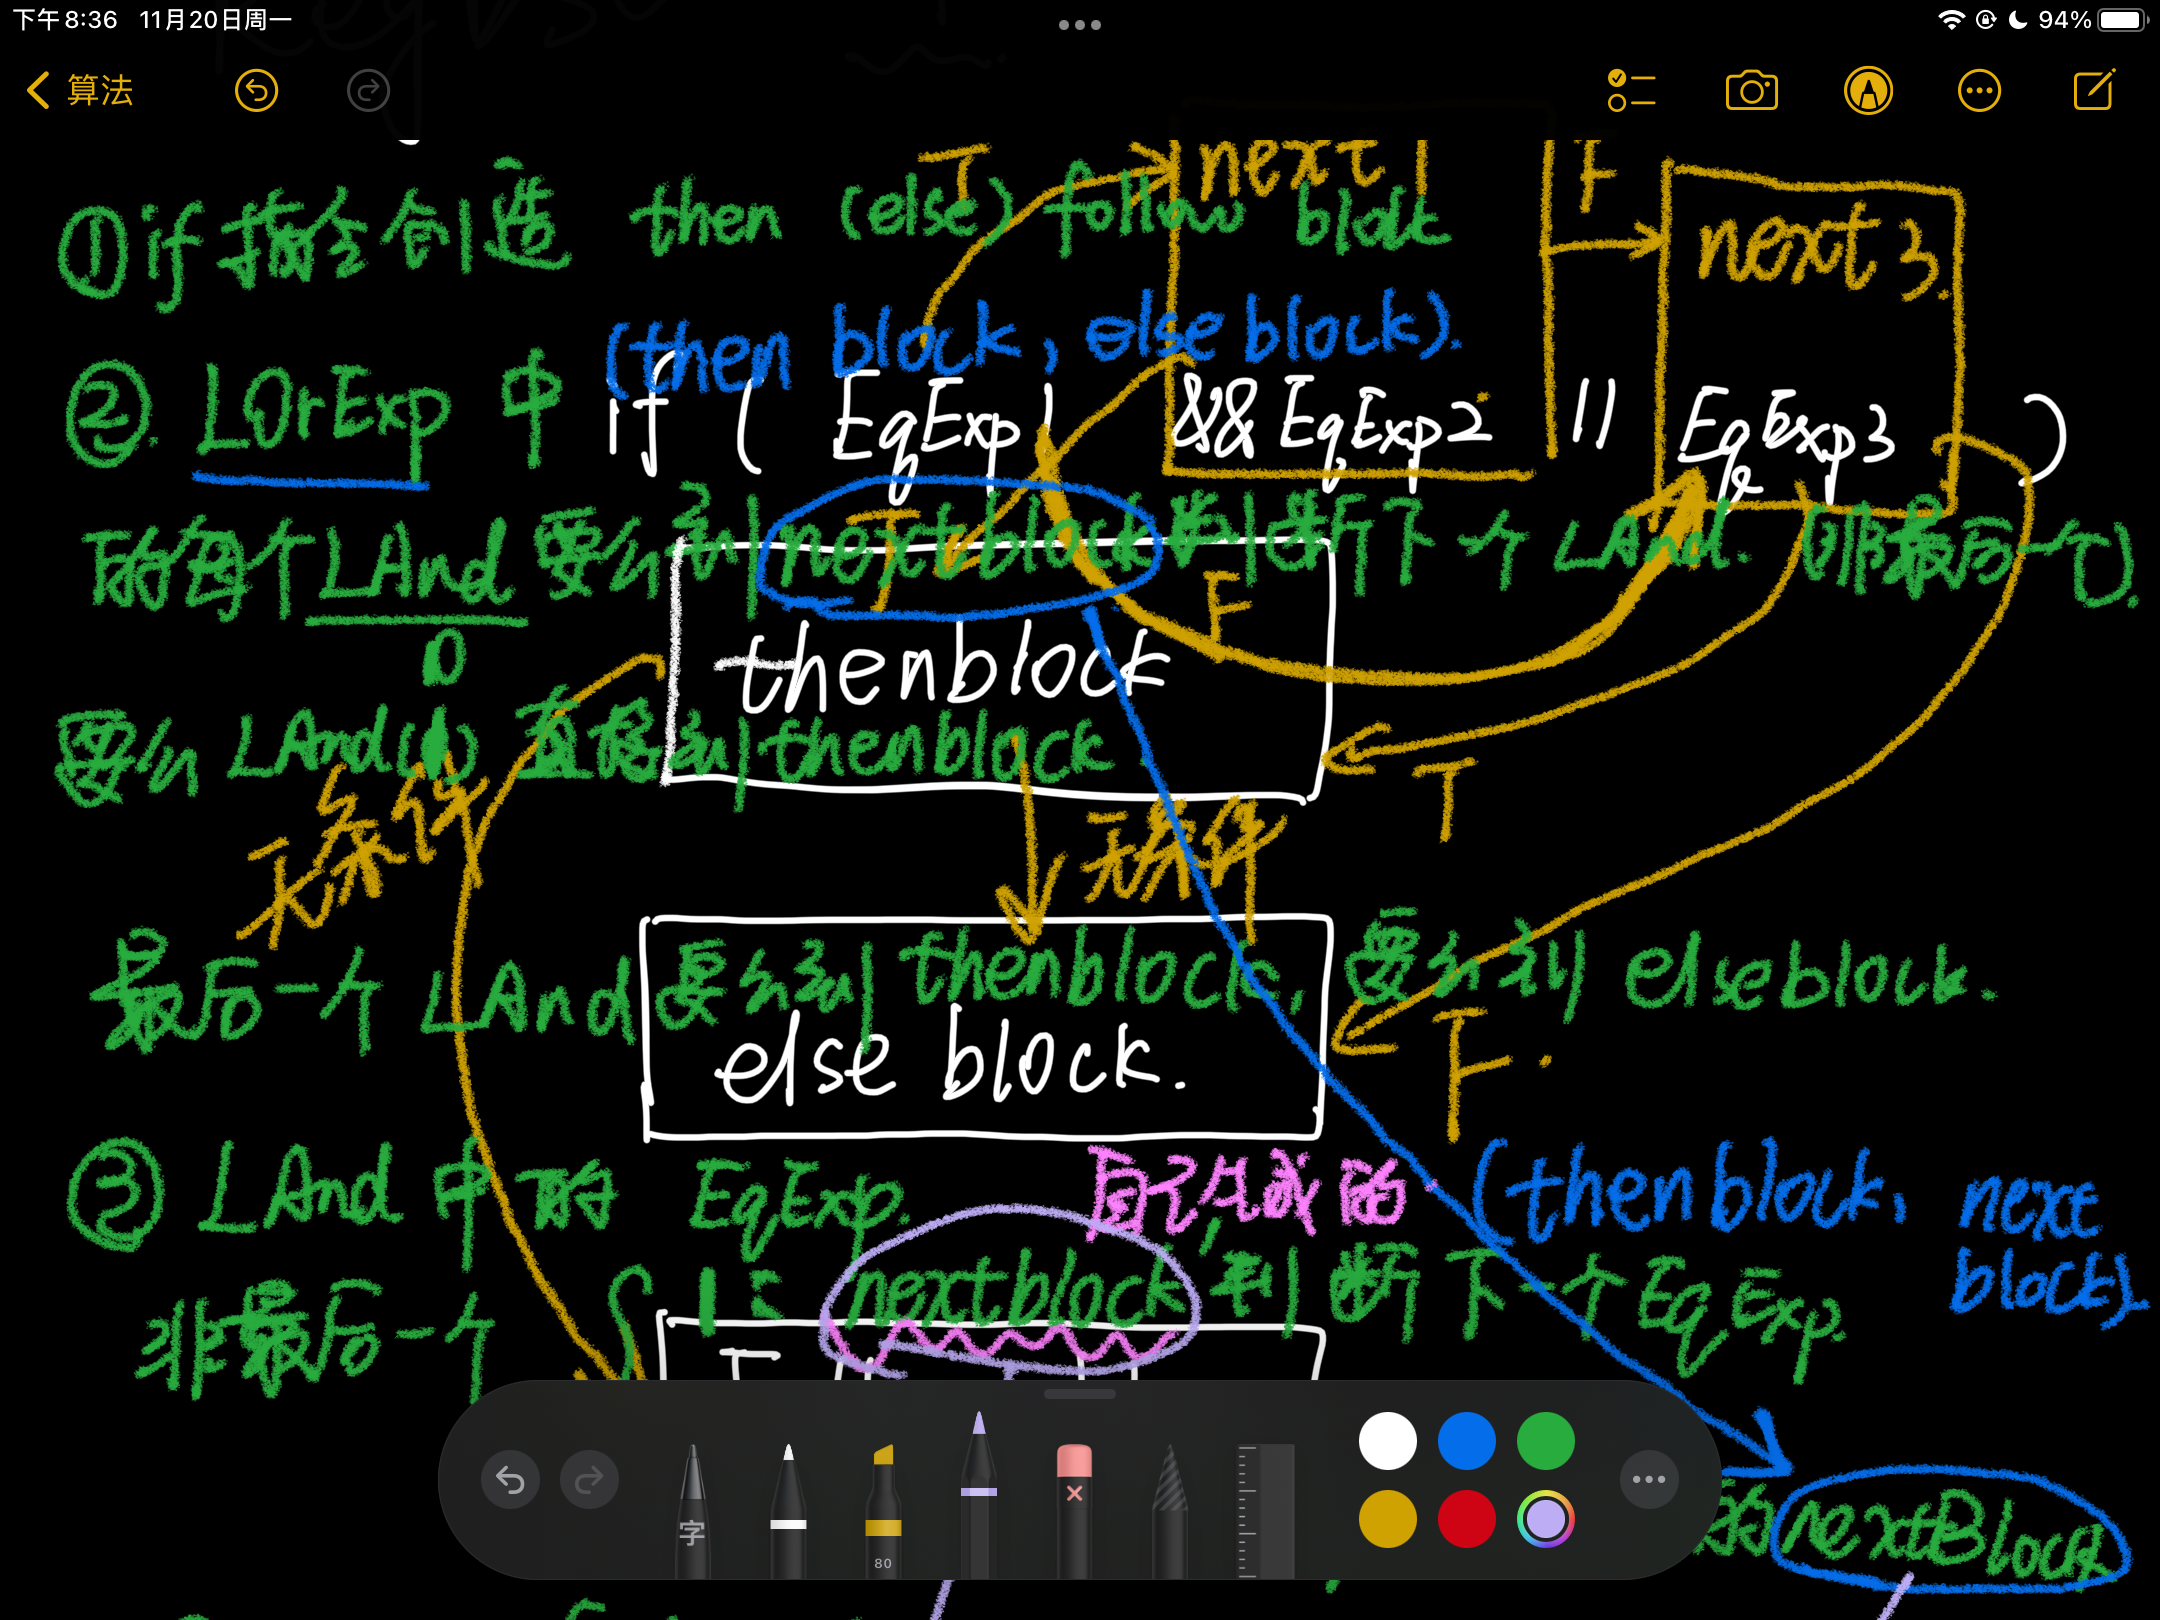 下午8:36 11月20日周一
94%
算法
T next 1 F
① if 指令创造 then (else) follow block
next 3.
(then block, else block).
② LOrExp 中
if ( EqExp1 && EqExp2 || EqExp3 )
的每个 LAnd 要么到 nextblock 判断下一个 LAnd. (非最后一个).
T F
thenblock
0
要么 LAnd() 直接到 thenblock.
T
无条件 无条件
最后一个 LAnd 要么到 thenblock, 要么到 elseblock.
else block.
F.
③ LAnd 中的 EqExp.
自己生成的
(thenblock, next block).
非最后一个 1: nextblock 判断下一个 EqExp.
字
80
的 nextBlock